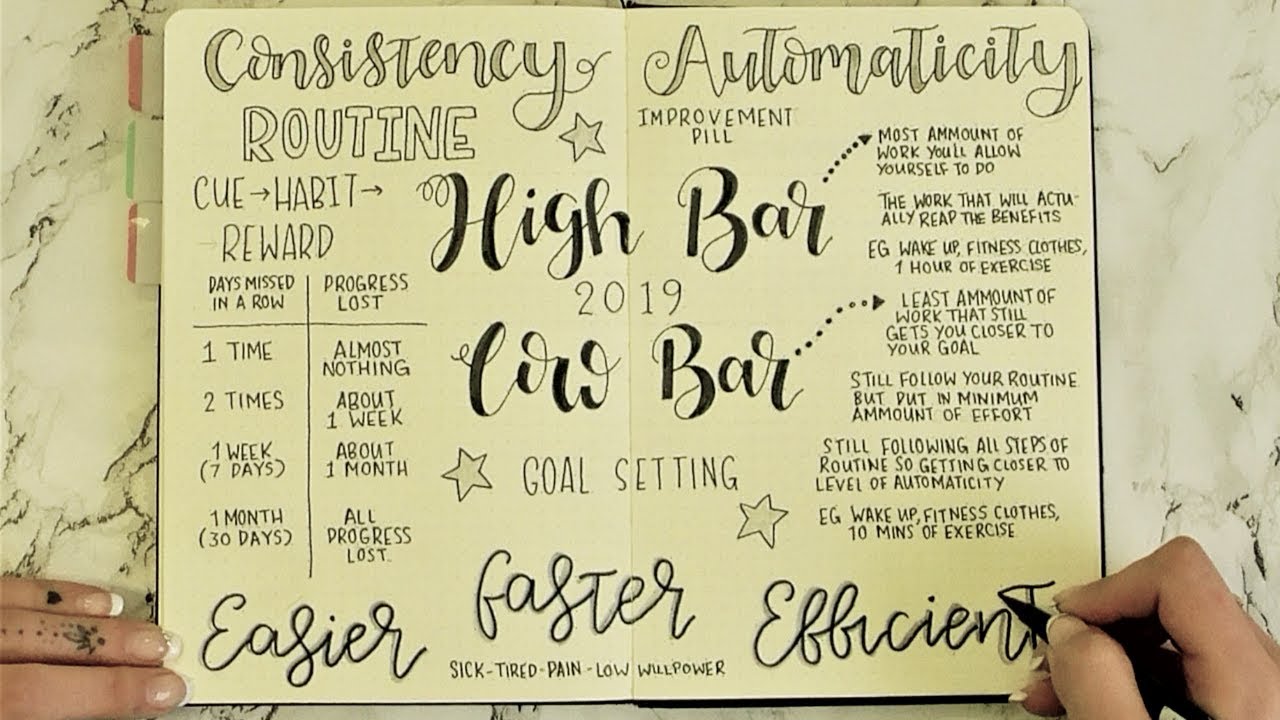 Consistency
ROUTINE
CUE→HABIT→
REWARD
DAYS MISSED IN A ROW
PROGRESS LOST
1 TIME
ALMOST NOTHING
2 TIMES
ABOUT 1 WEEK
1 WEEK (7 DAYS)
ABOUT 1 MONTH
1 MONTH (30 DAYS)
ALL PROGRESS LOST
Automaticity
IMPROVEMENT
PILL
High Bar
MOST AMMOUNT OF
WORK YOU'LL ALLOW
YOURSELF TO DO
THE WORK THAT WILL ACTU-
ALLY REAP THE BENEFITS
EG WAKE UP, FITNESS CLOTHES,
1 HOUR OF EXERCISE
2019
Low Bar
LEAST AMMOUNT OF
WORK THAT STILL
GETS YOU CLOSER TO
YOUR GOAL
STILL FOLLOW YOUR ROUTINE
BUT PUT IN MINIMUM
AMMOUNT OF EFFORT
STILL FOLLOWING ALL STEPS OF
ROUTINE SO GETTING CLOSER TO
LEVEL OF AUTOMATICITY
EG WAKE UP, FITNESS CLOTHES,
10 MINS OF EXERCISE
GOAL SETTING
Easier
faster
Efficient
SICK-TIRED-PAIN-LOW WILLPOWER